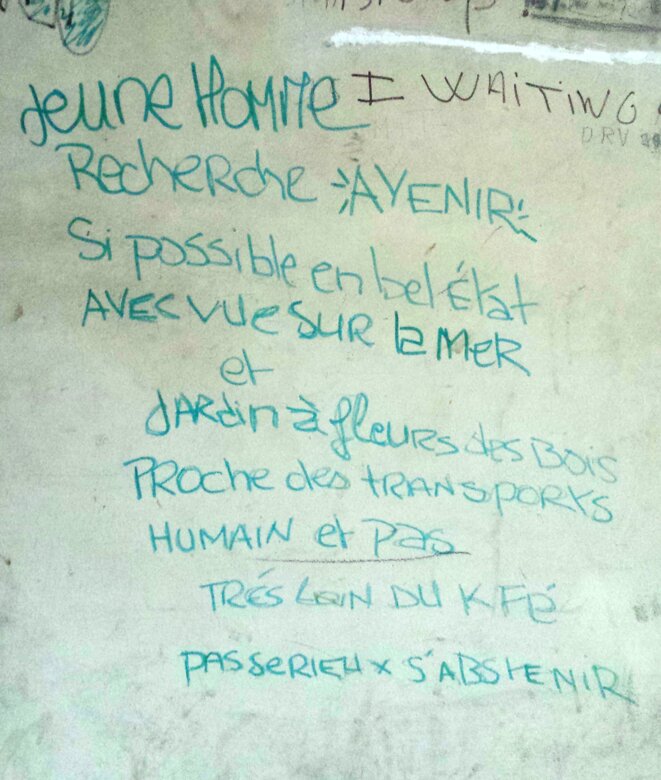 Jeune Homme I WAiTiNG
DRV
Recherche AVENIR
Si possible en bel État
AVEC VUE SUR la MER
et
JARdin à fleurs des BOIS
PROche des TRANSPORTS
HUMAIN et PAS
TRÉS Loin DU K Fé
PAS SERIEUX S'ABSTENIR